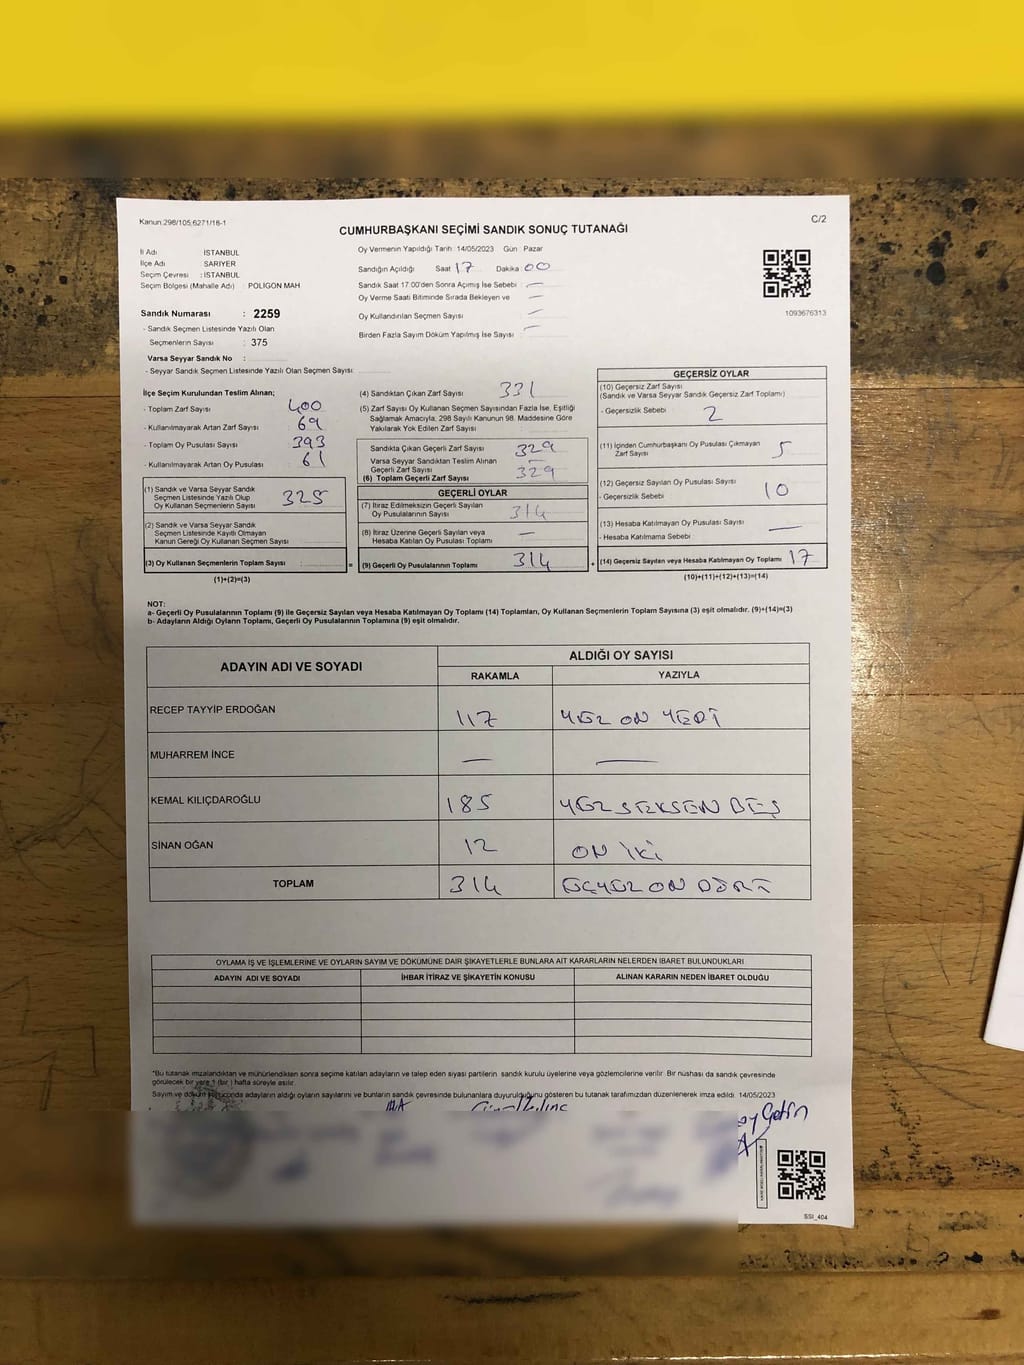 Kanun:298/105,6271/18-1
C/2
CUMHURBAŞKANI SEÇİMİ SANDIK SONUÇ TUTANAĞI
İl Adı : İSTANBUL
İlçe Adı : SARIYER
Seçim Çevresi : İSTANBUL
Seçim Bölgesi (Mahalle Adı) : POLİGON MAH
Oy Vermenin Yapıldığı Tarih: 14/05/2023 Gün : Pazar
Sandığın Açıldığı Saat 17 Dakika : 00
Sandık Saat 17:00'den Sonra Açılmış İse Sebebi : —
Oy Verme Saati Bitiminde Sırada Bekleyen ve —
Oy Kullandırılan Seçmen Sayısı : —
Birden Fazla Sayım Döküm Yapılmış İse Sayısı : —
1093676313
Sandık Numarası : 2259
- Sandık Seçmen Listesinde Yazılı Olan
Seçmenlerin Sayısı : 375
Varsa Seyyar Sandık No :
- Seyyar Sandık Seçmen Listesinde Yazılı Olan Seçmen Sayısı:
İlçe Seçim Kurulundan Teslim Alınan;
- Toplam Zarf Sayısı : 400
- Kullanılmayarak Artan Zarf Sayısı : 69
- Toplam Oy Pusulası Sayısı : 393
- Kullanılmayarak Artan Oy Pusulası : 61
(1) Sandık ve Varsa Seyyar Sandık
Seçmen Listesinde Yazılı Olup
Oy Kullanan Seçmenlerin Sayısı : 325
(2) Sandık ve Varsa Seyyar Sandık
Seçmen Listesinde Kayıtlı Olmayan
Kanun Gereği Oy Kullanan Seçmen Sayısı :
(3) Oy Kullanan Seçmenlerin Toplam Sayısı :
(1)+(2)=(3)
(4) Sandıktan Çıkan Zarf Sayısı : 331
(5) Zarf Sayısı Oy Kullanan Seçmen Sayısından Fazla İse, Eşitliği
Sağlamak Amacıyla, 298 Sayılı Kanunun 98. Maddesine Göre
Yakılarak Yok Edilen Zarf Sayısı :
Sandıkta Çıkan Geçerli Zarf Sayısı : 329
Varsa Seyyar Sandıktan Teslim Alınan
Geçerli Zarf Sayısı : —
(6) Toplam Geçerli Zarf Sayısı : 329
GEÇERLİ OYLAR
(7) İtiraz Edilmeksizin Geçerli Sayılan
Oy Pusulalarının Sayısı : 314
(8) İtiraz Üzerine Geçerli Sayılan veya
Hesaba Katılan Oy Pusulası Toplamı : —
= (9) Geçerli Oy Pusulalarının Toplamı : 314
GEÇERSİZ OYLAR
(10) Geçersiz Zarf Sayısı
(Sandık ve Varsa Seyyar Sandık Geçersiz Zarf Toplamı)
- Geçersizlik Sebebi : 2
(11) İçinden Cumhurbaşkanı Oy Pusulası Çıkmayan
Zarf Sayısı : 5
(12) Geçersiz Sayılan Oy Pusulası Sayısı :
- Geçersizlik Sebebi : 10
(13) Hesaba Katılmayan Oy Pusulası Sayısı : —
- Hesaba Katılmama Sebebi :
+ (14) Geçersiz Sayılan veya Hesaba Katılmayan Oy Toplamı : 17
(10)+(11)+(12)+(13)=(14)
NOT:
a- Geçerli Oy Pusulalarının Toplamı (9) ile Geçersiz Sayılan veya Hesaba Katılmayan Oy Toplamı (14) Toplamları, Oy Kullanan Seçmenlerin Toplam Sayısına (3) eşit olmalıdır. (9)+(14)=(3)
b- Adayların Aldığı Oyların Toplamı, Geçerli Oy Pusulalarının Toplamına (9) eşit olmalıdır.
ADAYIN ADI VE SOYADI
ALDIĞI OY SAYISI
RAKAMLA YAZIYLA
RECEP TAYYİP ERDOĞAN 117 YÜZ ON YEDİ
MUHARREM İNCE — —
KEMAL KILIÇDAROĞLU 185 YÜZ SEKSEN BEŞ
SİNAN OĞAN 12 ON İKİ
TOPLAM 314 ÜÇYÜZ ON DÖRT
OYLAMA İŞ VE İŞLEMLERİNE VE OYLARIN SAYIM VE DÖKÜMÜNE DAİR ŞİKAYETLERLE BUNLARA AİT KARARLARIN NELERDEN İBARET BULUNDUKLARI
ADAYIN ADI VE SOYADI İHBAR İTİRAZ VE ŞİKAYETİN KONUSU ALINAN KARARIN NEDEN İBARET OLDUĞU
*Bu tutanak imzalandıktan ve mühürlendikten sonra seçime katılan adayların ve talep eden siyasi partilerin sandık kurulu üyelerine veya gözlemcilerine verilir. Bir nüshası da sandık çevresinde
görülecek bir yere 1 (bir ) hafta süreyle asılır.
Sayım ve döküm sonucunda adayların aldığı oyların sayılarını ve bunların sandık çevresinde bulunanlara duyurulduğunu gösteren bu tutanak tarafımızdan düzenlenerek imza edildi. 14/05/2023
SSI_404